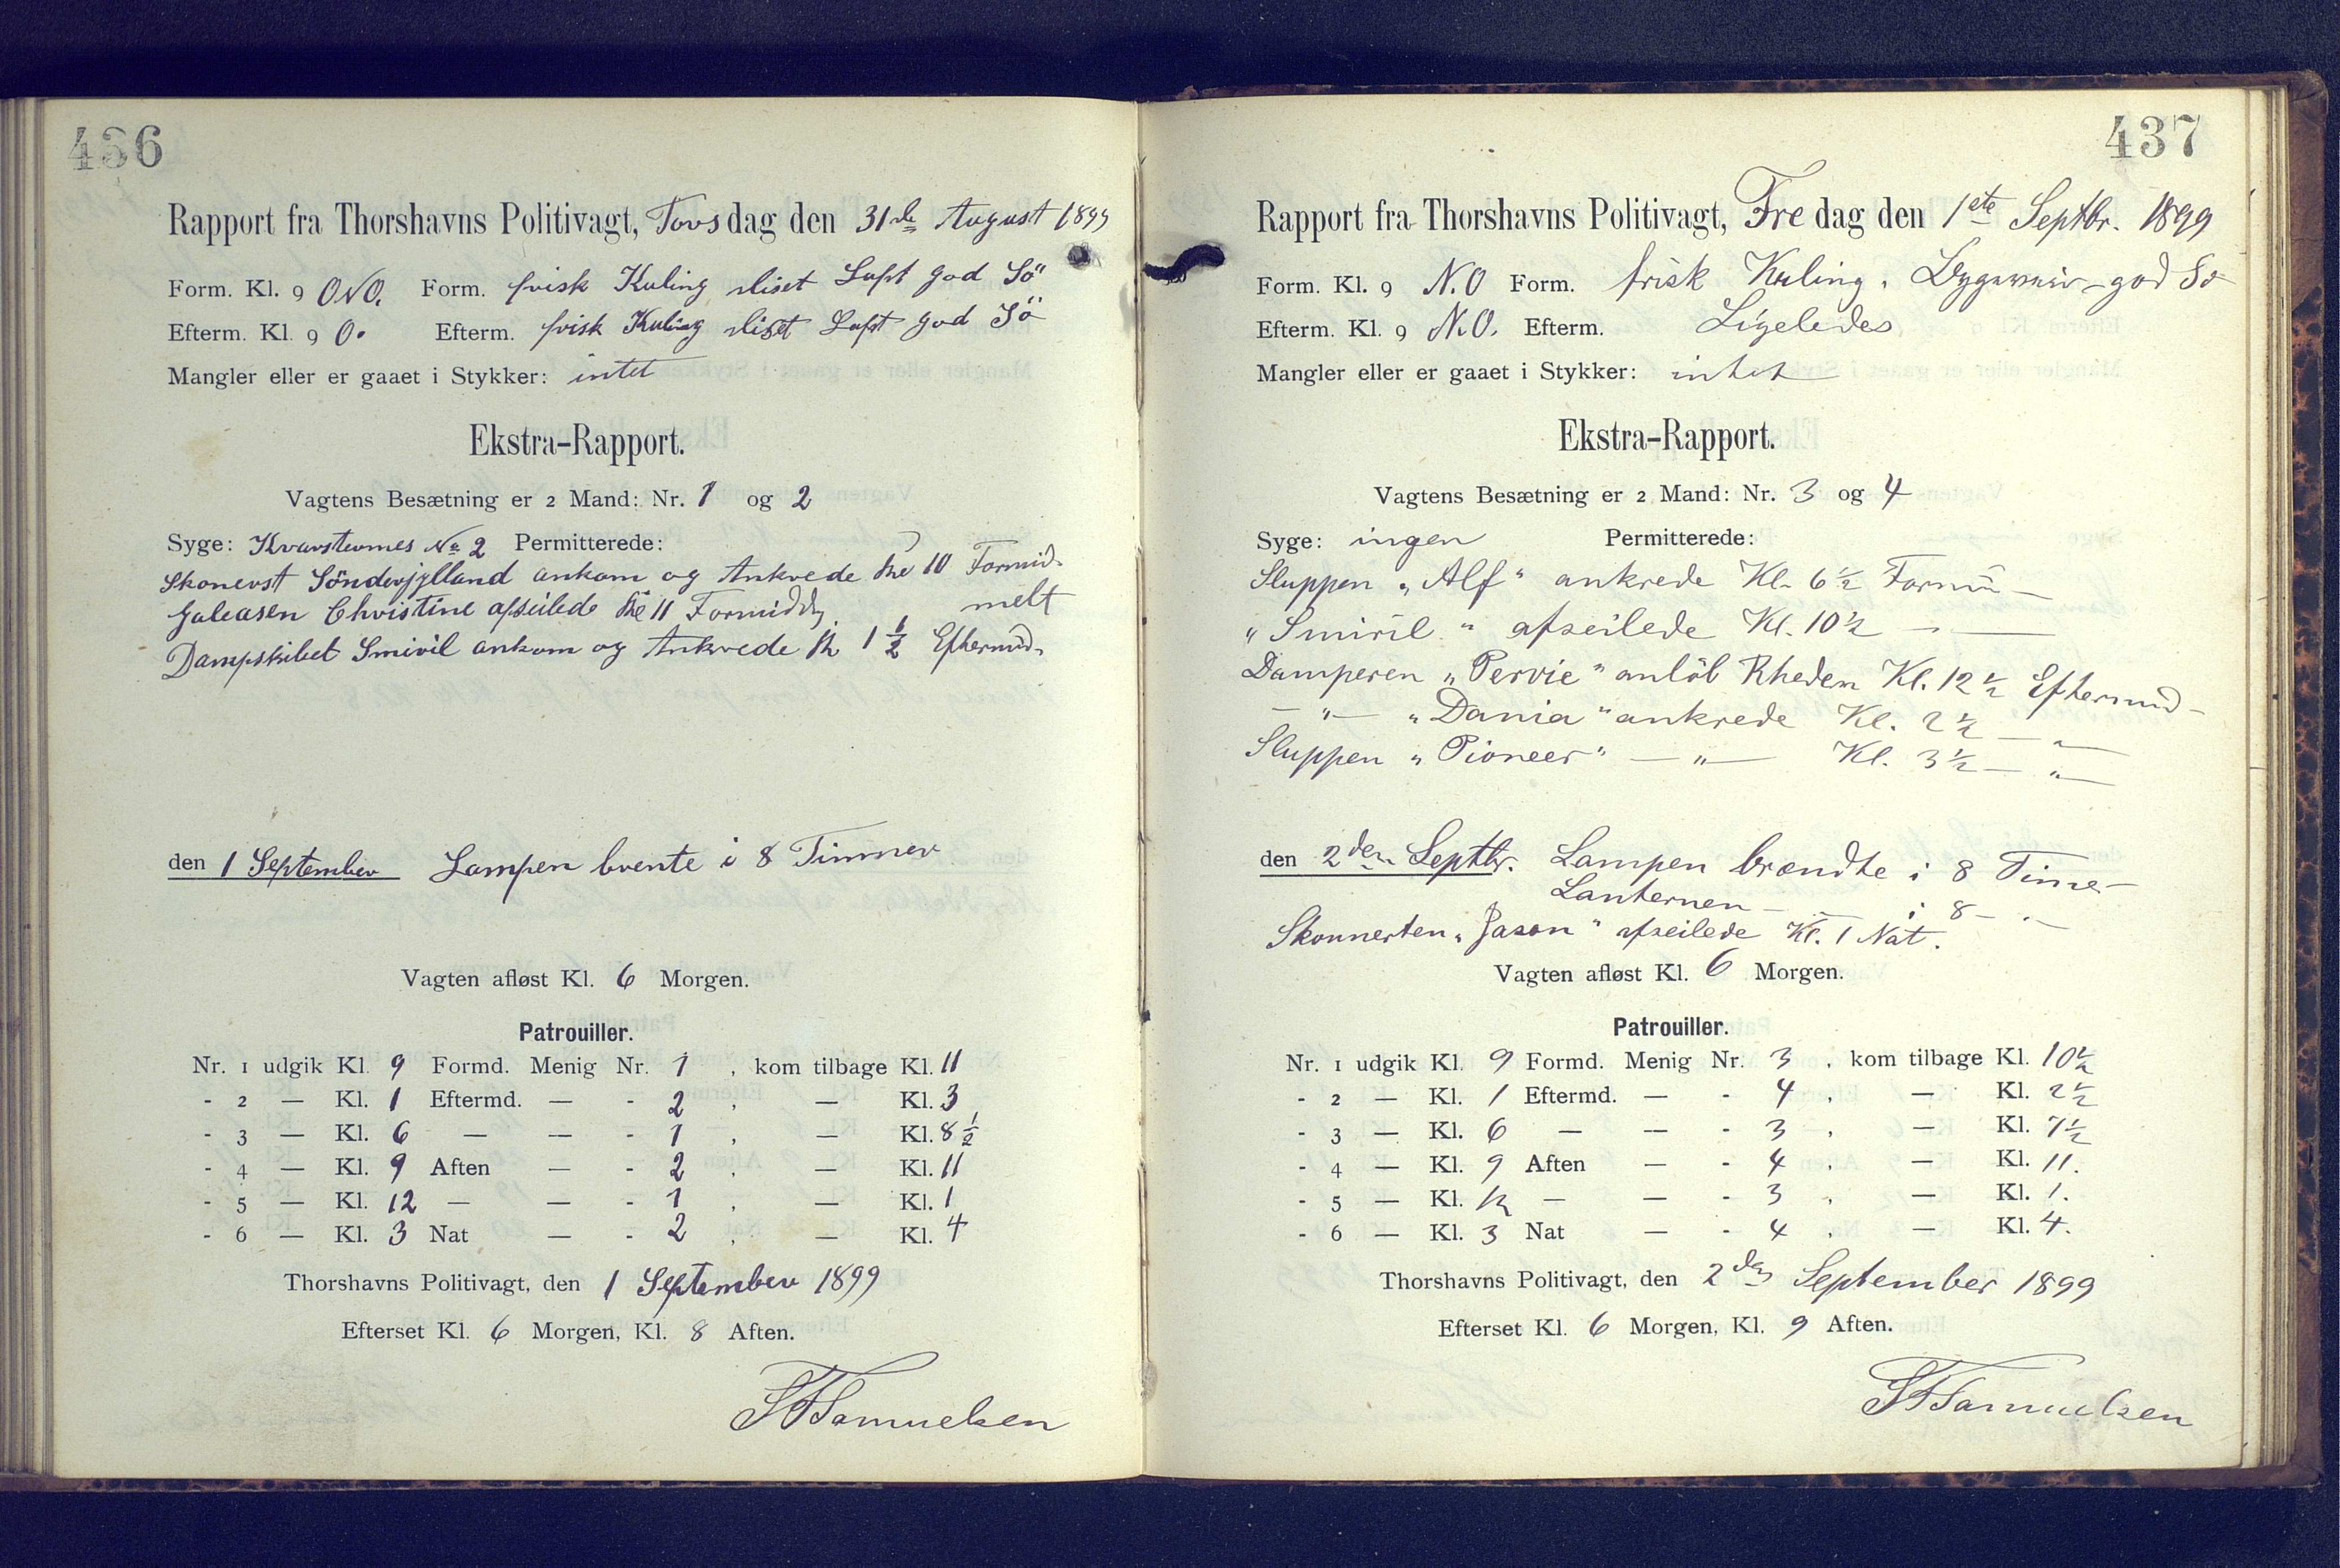 436
Rapport fra Thorshavns Politivagt, Torsdag den 31de August 1899
Form. Kl. 9 ONO. Form. frisk Kuling diset Luft god Sö
Efterm. Kl. 9 O. Efterm. frisk Kuling diset Luft god Sö
Mangler eller er gaaet i Stykker: intet
Ekstra-Rapport.
Vagtens Besætning er 2 Mand: Nr. 1 og 2
Syge: No 2 Permitterede:
Skonerst Sönderjylland ankom og Ankrede Kl 10 Formid-
Galeasen Christine afseilede Kl 11 Formidd melt
Dampskibet Smiril ankom og Ankrede Kl 1 1/2 Eftermid-
den 1 September Lampen brente i 8 Timmer
Vagten afløst Kl. 6 Morgen.
Patrouiller.
Nr. 1 udgik Kl. 9 Formd. Menig Nr. 1 , kom tilbage Kl. 11
- 2 — Kl. 1 Eftermd. — - 2 , — Kl. 3
- 3 — Kl. 6 — — - 1 , — Kl. 8 1/2
- 4 — Kl. 9 Aften — - 2 , — Kl. 11
- 5 — Kl. 12 — — - 1 , — Kl. 1
- 6 — Kl. 3 Nat — - 2 , — Kl. 4
Thorshavns Politivagt, den 1 September 1899
Efterset Kl. 6 Morgen, Kl. 8 Aften.
Samuelsen
437
Rapport fra Thorshavns Politivagt, Fredag den 1ste Septbr. 1899
Form. Kl. 9 N.O Form. frisk Kuling. god Sö
Efterm. Kl. 9 N.O. Efterm. Ligeledes
Mangler eller er gaaet i Stykker: intet
Ekstra-Rapport.
Vagtens Besætning er 2 Mand: Nr. 3 og 4
Syge: ingen Permitterede:
Sluppen „Alf" ankrede Kl. 6 1/2 Formi—
„Smiril" afseilede Kl. 10 1/2 - —
Damperen „Pervie" anlöb Rheden Kl. 12 1/2 Eftermid-
— „ — „Dania" ankrede Kl. 2 1/2 — „ —
Sluppen „Pioneer" — „ — Kl. 3 1/2 — „ —
den 2den Septbr. Lampen brændte i 8 Time-
Lanternen — — i 8 — -
Skonnerten „Jason" afseilede Kl. 1 Nat.
Vagten afløst Kl. 6 Morgen.
Patrouiller.
Nr. 1 udgik Kl. 9 Formd. Menig Nr. 3 , kom tilbage Kl. 10 1/2
- 2 — Kl. 1 Eftermd. — - 4 , — Kl. 2 1/2
- 3 — Kl. 6 — — - 3 , — Kl. 7 1/2
- 4 — Kl. 9 Aften — - 4 , — Kl. 11.
- 5 — Kl. 12 — — - 3 , — Kl. 1.
- 6 — Kl. 3 Nat — - 4 , — Kl. 4.
Thorshavns Politivagt, den 2den September 1899
Efterset Kl. 6 Morgen, Kl. 9 Aften.
Samuelsen